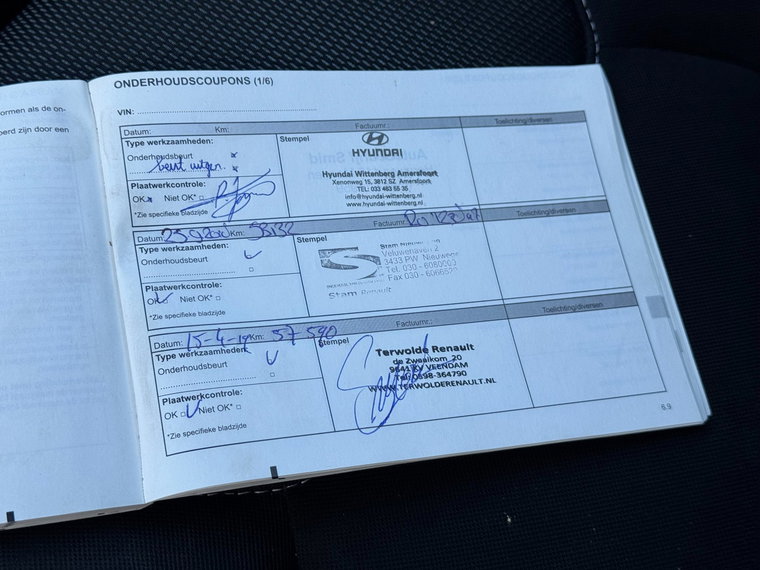 ormen als de on-
erd zijn door een
ONDERHOUDSCOUPONS (1/6)
VIN:
Datum: Km: Factuurnr.: Toelichting/diversen
Type werkzaamheden:
Onderhoudsbeurt x
Stempel
HYUNDAI
Hyundai Wittenberg Amersfoort
Xenonweg 15, 3812 SZ Amersfoort
TEL: 033 463 55 35
info@hyundai-wittenberg.nl
www.hyundai-wittenberg.nl
Plaatwerkcontrole:
OK x Niet OK* □
*Zie specifieke bladzijde
Datum: Km: 53132 Factuurnr.: Toelichting/diversen
Type werkzaamheden:
Onderhoudsbeurt
Stempel
Veluwehaven 2
3433 PW Nieuwege
Tel. 030 -
Fax 030 -
Stam Renault
Plaatwerkcontrole:
OK Niet OK* □
*Zie specifieke bladzijde
Datum: 15-4-19 Km: 57 590 Factuurnr.: Toelichting/diversen
Type werkzaamheden:
Onderhoudsbeurt
Stempel
Terwolde Renault
de Zwaaikom 20
9641 KV VEENDAM
Tel. 0598-364790
WWW.TERWOLDERENAULT.NL
Plaatwerkcontrole:
OK □ Niet OK* □
*Zie specifieke bladzijde
6.9